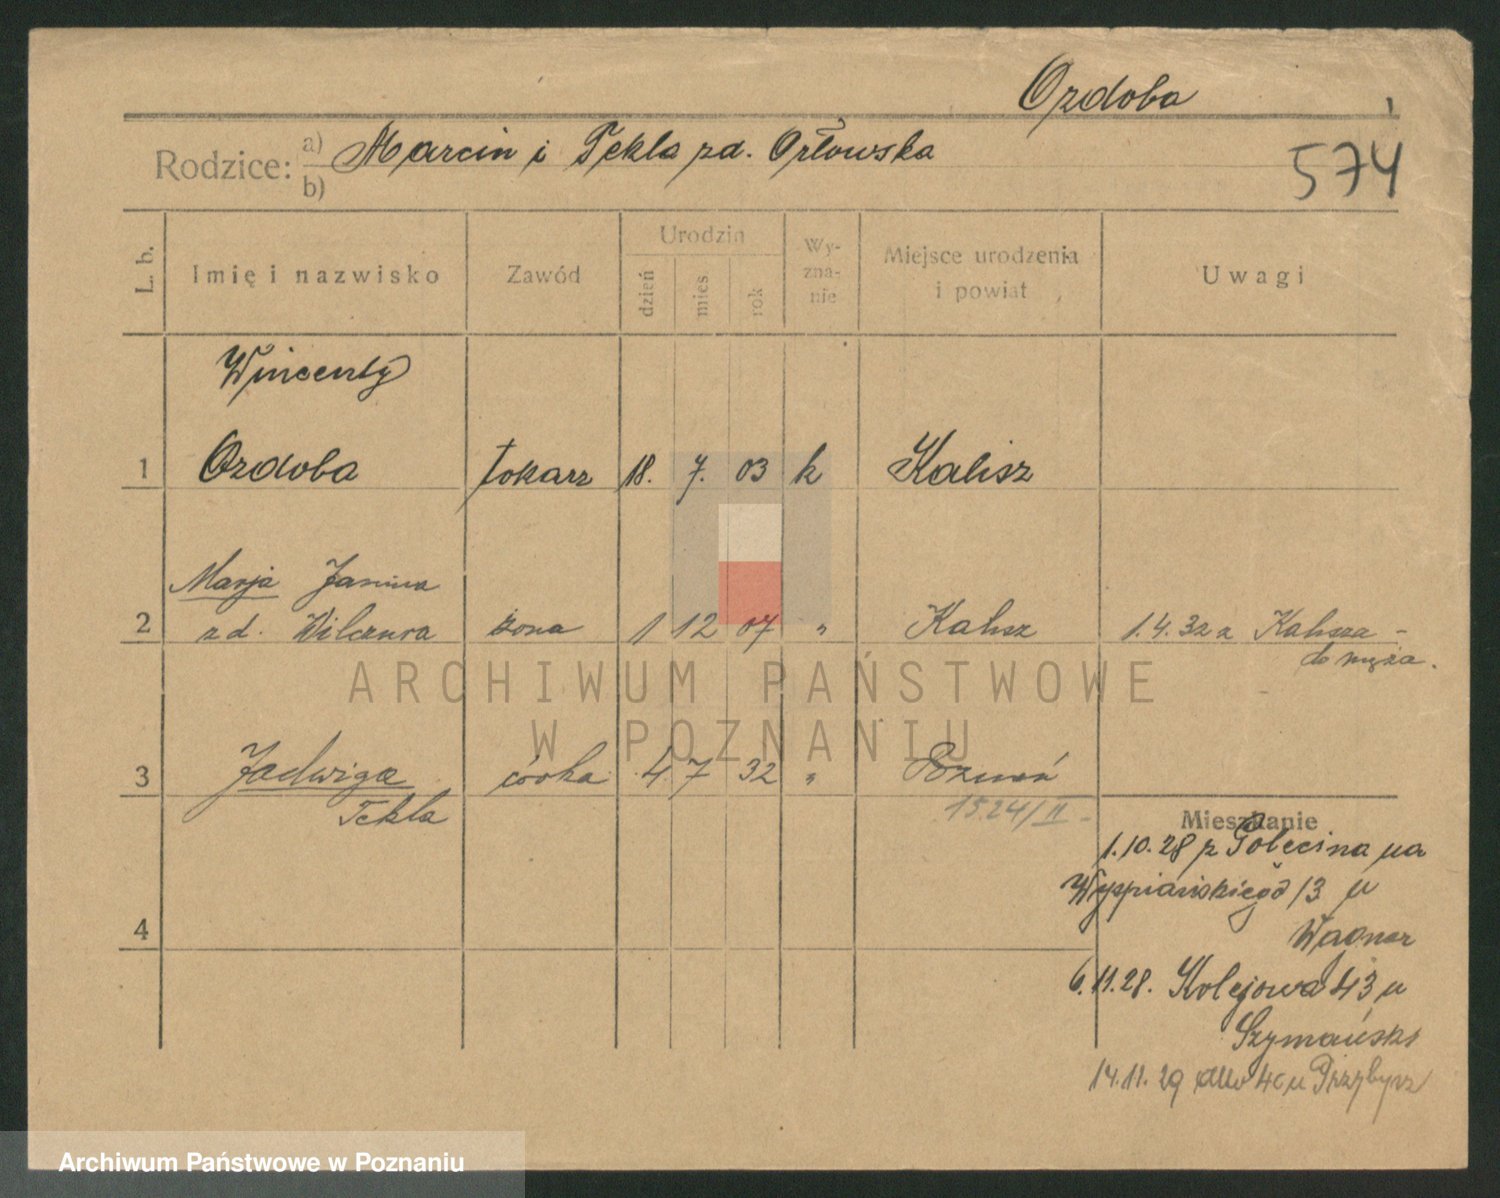 Ozdoba
Rodzice: a) Marcin i Tekla zd. Orłowska
b)
574
L. b. Imię i nazwisko Zawód Urodzin dzień mies rok Wy-zna-nie Miejsce urodzenia i powiat Uwagi
Wincenty
1 Ozdoba tokarz 18. 7. 03 k Kalisz
Marja Janina
2 zd. Wilczura żona 1 12 07 " Kalisz 1.4.32 z Kalisza -
do męża.
3 Jadwiga córka 4. 7 32 " Poznań
Tekla 1524/II -
Mieszkanie
1.10.28 z Golęcina na
Wyspiańskiego 13 u
Wagner
4
6.11.28. Kolejowa 43 u
Szymański
14.11.29 u Przybysz
ARCHIWUM PAŃSTWOWE
W POZNANIU
Archiwum Państwowe w Poznaniu